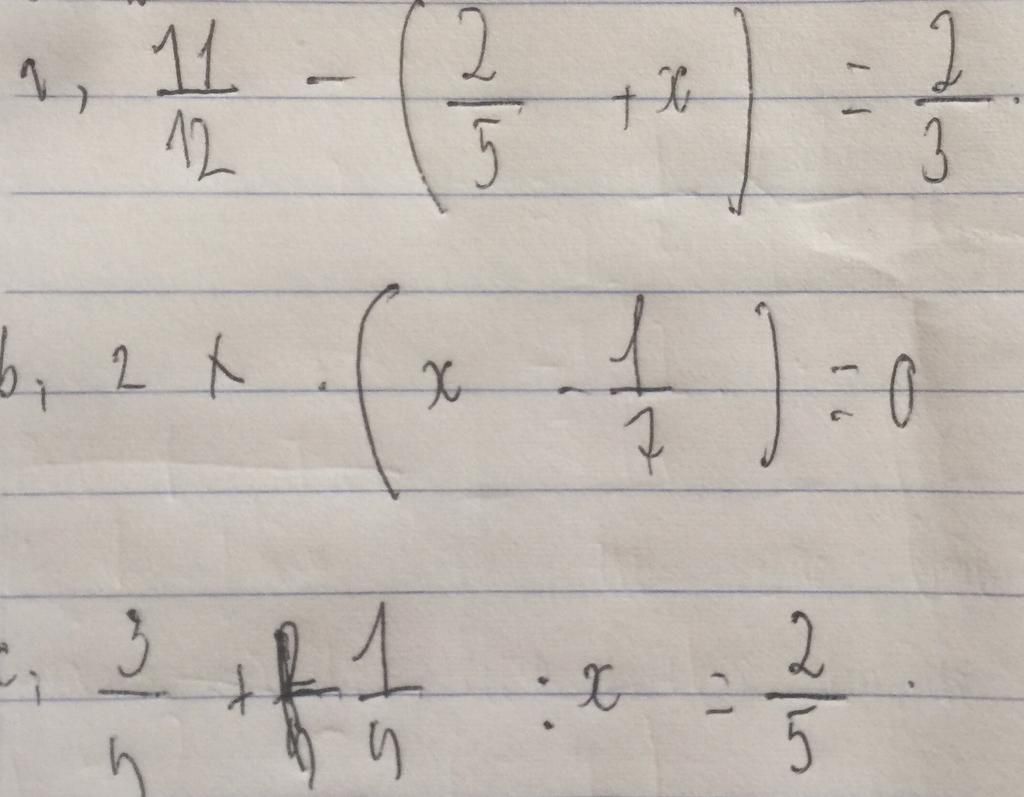 a, 11/12 - (2/5 + x) = 2/3.
b, 2 x . (x - 1/7) = 0
c, 3/4 + 1/4 : x = 2/5 .